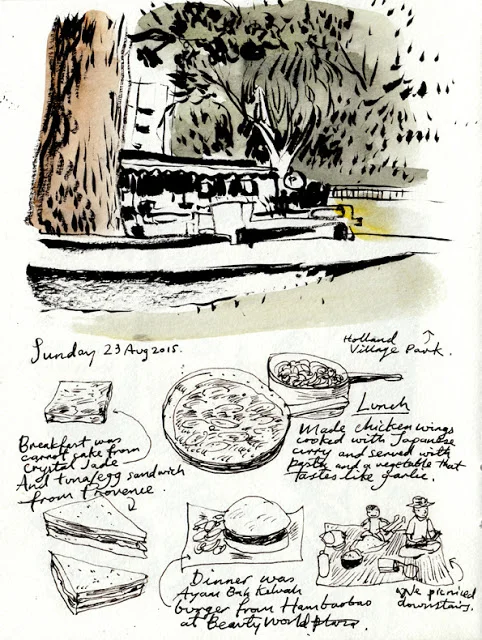 Sunday 23 Aug 2015.
Holland
Village Park.
Breakfast was
carrot cake from
Crystal Jade
And tuna/egg sandwich
from Provence.
Lunch
Made chicken wings
cooked with Japanese
curry and served with
pasta and a vegetable that
tastes like garlic.
Dinner was
Ayam Buah Keluak
burger from Hambaobao
at Beauty World plaza.
We picniced
downstairs.